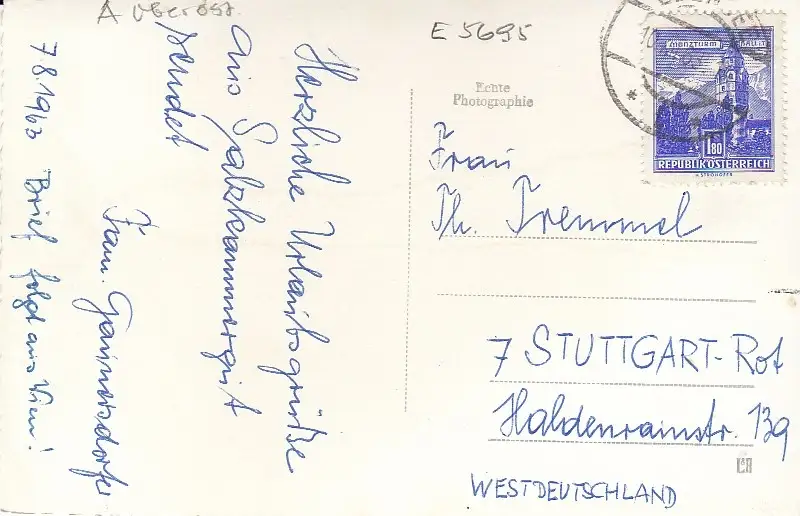 A Oberöst.
E 5695
Herzliche Urlaubsgrüße
aus Salzkammergut
sendet
Fam. Gaunersdorfer
7.8.1963 Brief folgt aus Wien!
Echte
Photographie
MÜNZTURM HALL I. T.
1.80
REPUBLIK ÖSTERREICH
H. STROHOFER
Frau
Th. Tremmel
7 STUTTGART-Rot
Haldenrainstr. 139
WESTDEUTSCHLAND